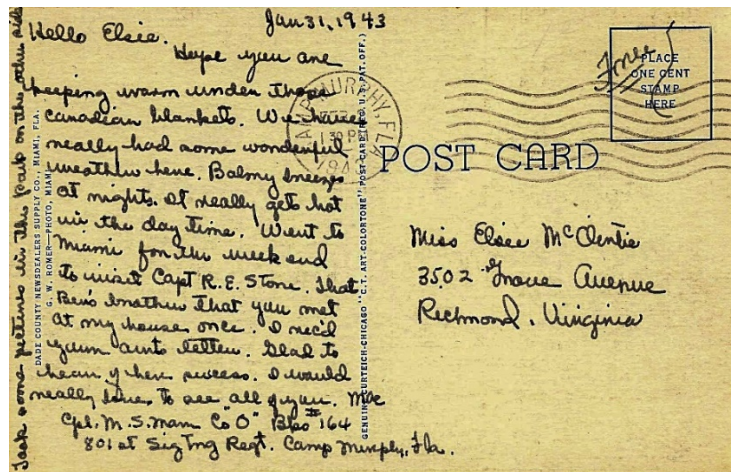 Jan 31, 1943
Hello Elsie.
Hope you are
keeping warm under those
Canadian blankets. We have
really had some wonderful
weather here. Balmy breezes
at nights. It really gets hot
in the day time. Went to
Miami for the week end
to visit Capt R. E. Stone. That
Ben's brother that you met
at my house once. I rec'd
your aunts letter. Glad to
hear of her success. I would
really love to see all of you. Mac
Cpl. M. S. Mann Co "O" Bks #164
801st Sig Tng Regt. Camp Murphy, Fla.
Took some pictures in this park on the other side
DADE COUNTY NEWSDEALERS SUPPLY CO., MIAMI, FLA.
G. W. ROMER—PHOTO, MIAMI
GENUINE CURTEICH-CHICAGO "C.T. ART-COLORTONE" POST CARD (REG. U.S. PAT. OFF.)
CAMP MURPHY, FLA.
130 PM
1943
Free
PLACE
ONE CENT
STAMP
HERE
POST CARD
Miss Elsie
3502 Grove Avenue
Richmond, Virginia